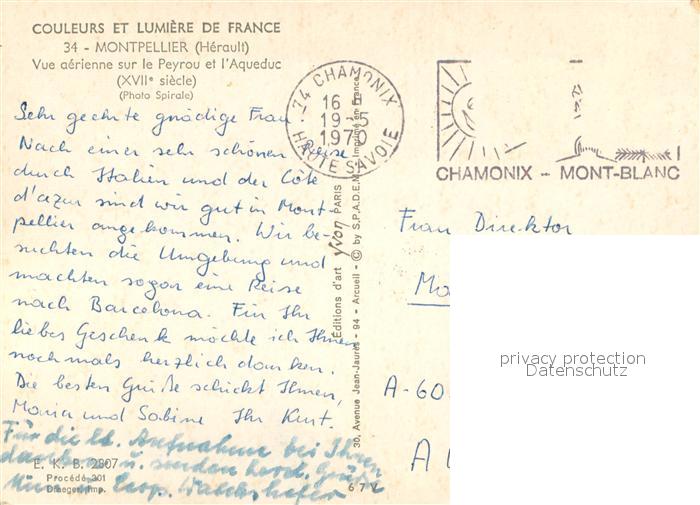 COULEURS ET LUMIÈRE DE FRANCE
34 - MONTPELLIER (Hérault)
Vue aérienne sur le Peyrou et l'Aqueduc
(XVIIe siècle)
(Photo Spirale)
Sehr geehrte gnädige Frau
Nach einer sehr schönen Reise
durch Italien und der Côte
d'azur sind wir gut in Mont-
pellier angekommen. Wir be-
suchten die Umgebung und
machten sogar eine Reise
nach Barcelona. Für Ihr
liebes Geschenk möchte ich Ihnen
nochmals herzlich danken.
Die besten Grüße schickt Ihnen,
Maria und Sabine Ihr Kurt.
Für die lb. Aufnahme bei Ihnen
danken u. senden herzl. Grüße
E. K. B. 2807
Procédé 301
Draeger, Imp.
67V
Éditions d'art Yvon PARIS
30, Avenue Jean-Jaurès - 94 - Arcueil - © by S.P.A.D.E.M. Imprimé en France
74 CHAMONIX
16
19-5
1970
HAUTE SAVOIE
CHAMONIX - MONT-BLANC
Frau Direktor
A-60
A
privacy protection
Datenschutz